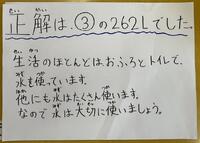 正解は、③の262Lでした。
生活のほとんどは、おふろとトイレで、
水を使っています。
他にも水はたくさん使います。
なので水は大切に使いましょう。